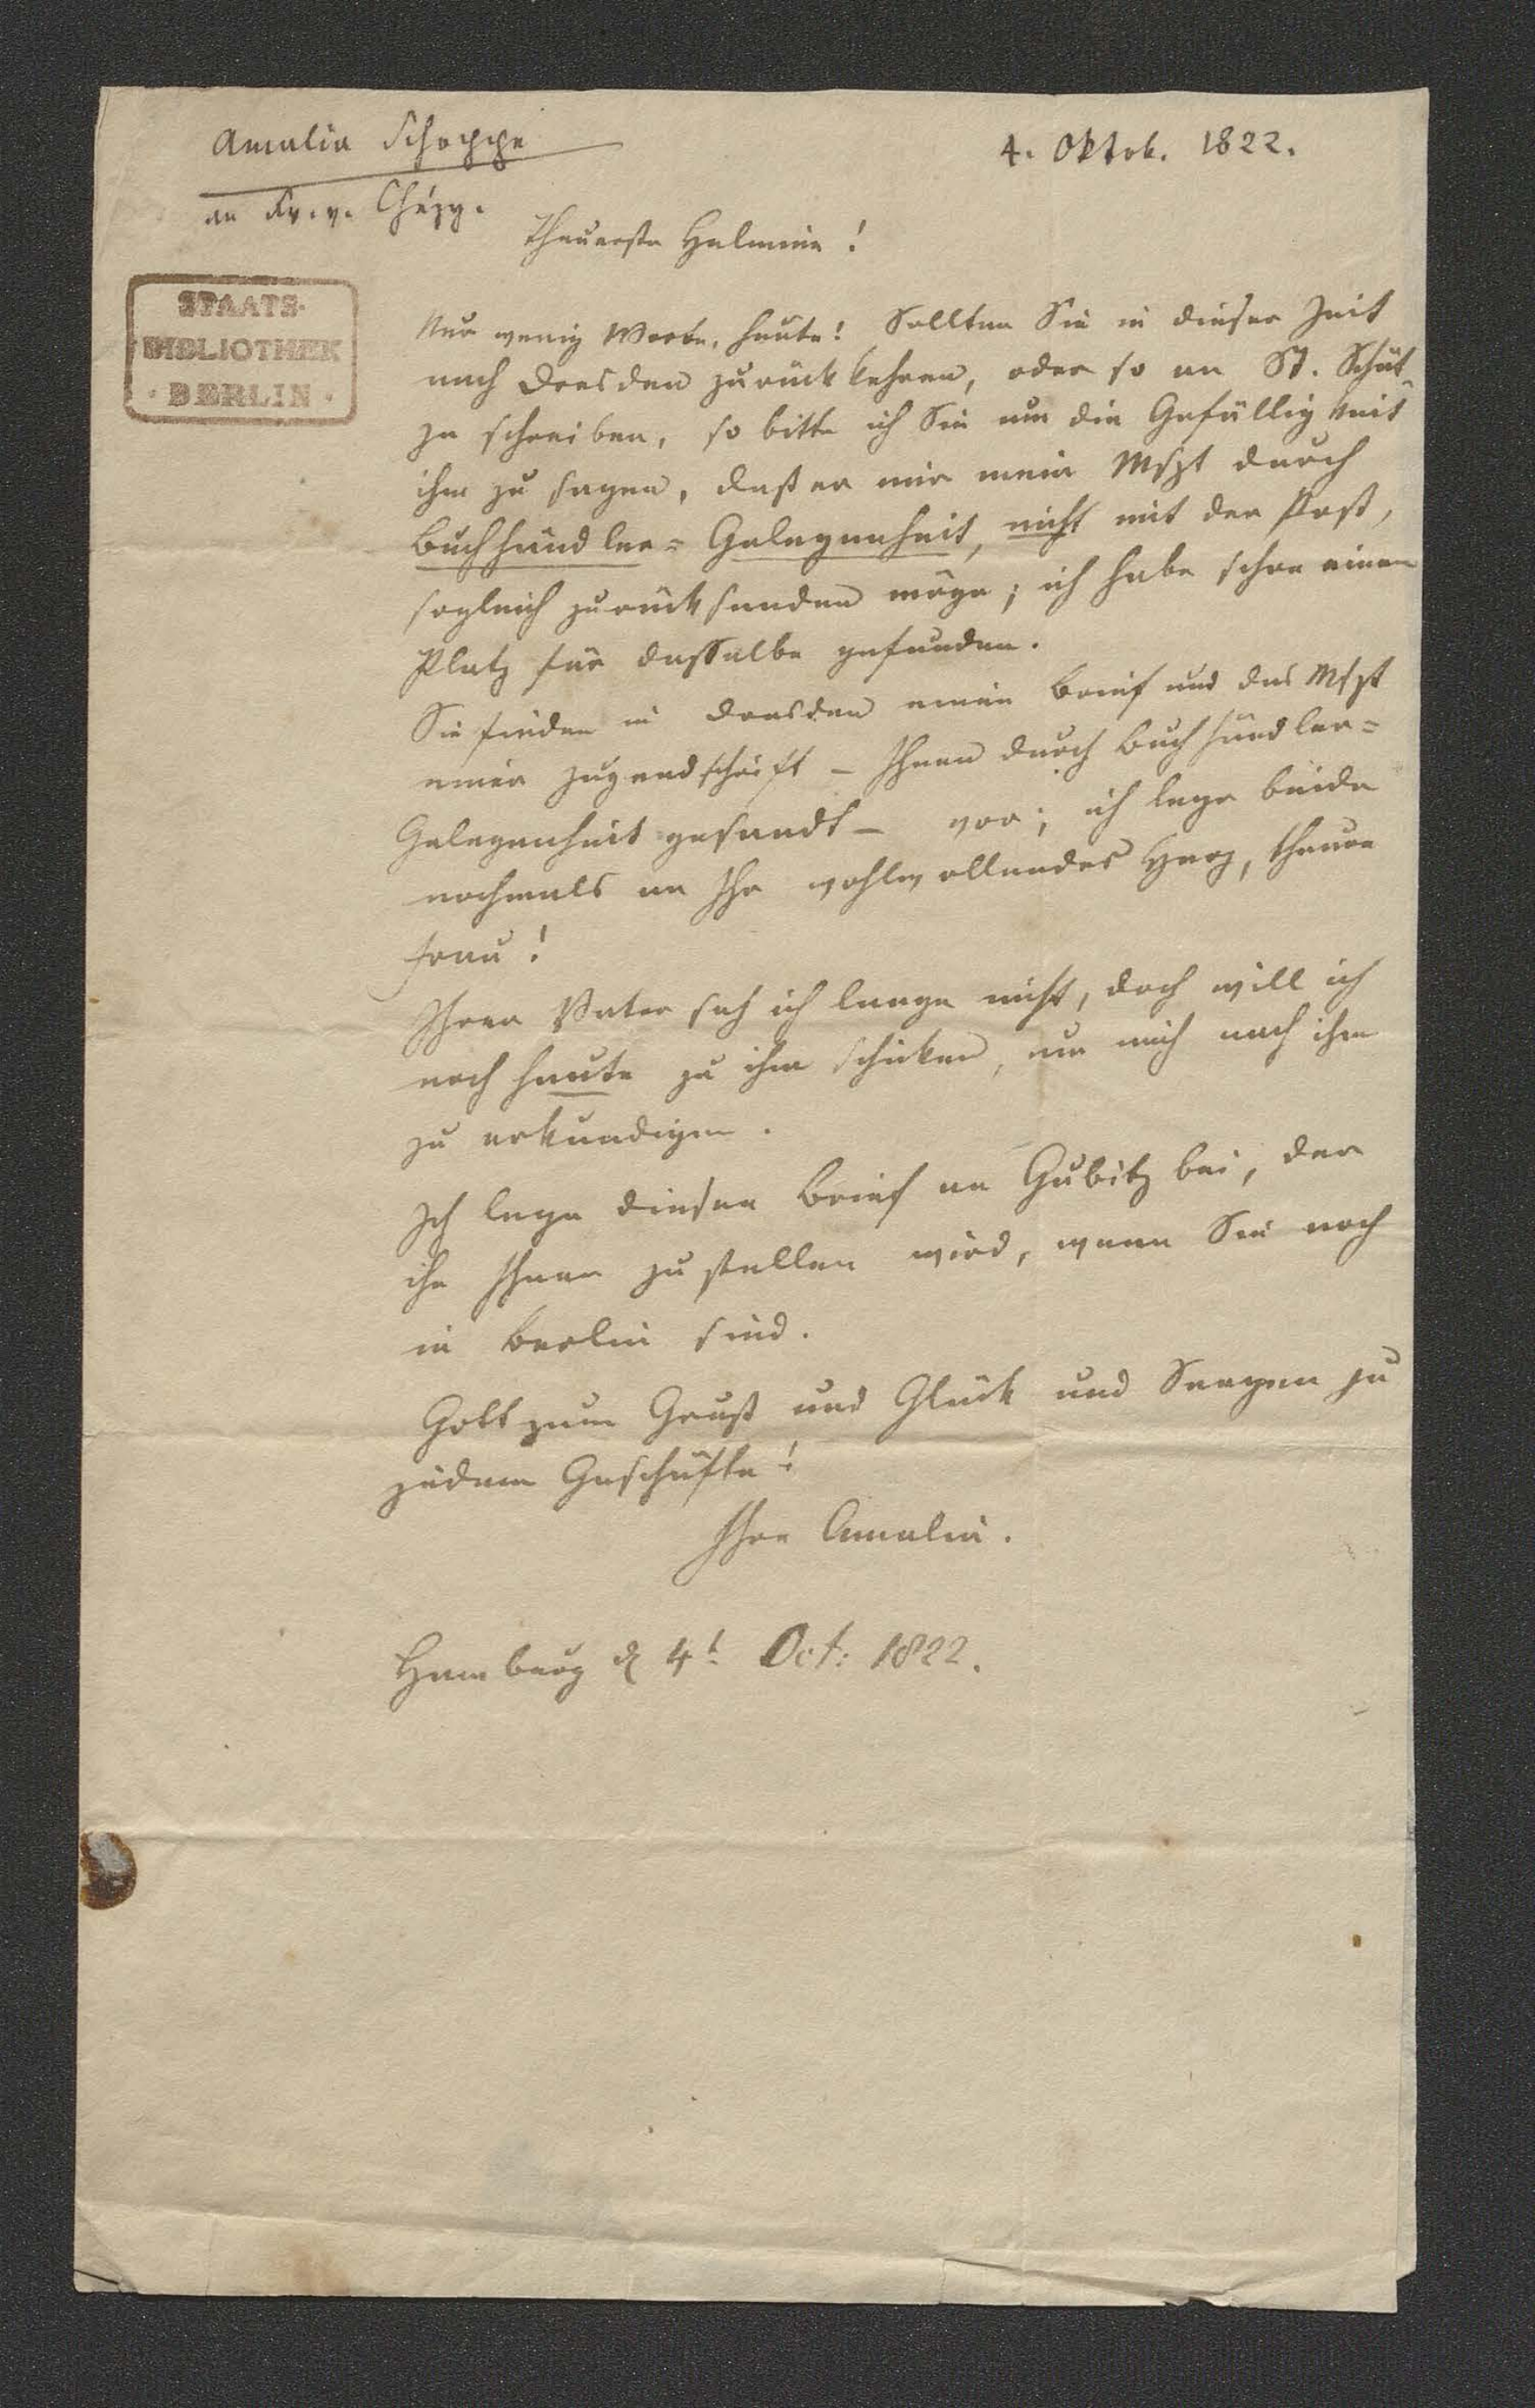 Amalia Schoppe
4. Oktob. 1822.
an Fr. v. Chézy.
STAATS-
BIBLIOTHEK
· BERLIN ·
Theuerste Helmina!
Nur wenig Worte, heute! Sollten Sie in dieser Zeit
nach Dresden zurückkehren, oder so an St. Schüt-
ze schreiben, so bitte ich Sie um die Gefälligkeit
ihm zu sagen, daß er mir mein Mspt durch
Buchhändler= Gelegenheit, nicht mit der Post,
sogleich zurücksenden möge; ich habe schon einen
Platz für dasselbe gefunden.
Sie finden in Dresden einen Brief und das Mspt
einer Jugendschrift – Ihnen durch Buchhändler=
Gelegenheit gesandt – vor; ich lege beide
nochmals an Ihr wohlwollendes Herz, theure
Frau!
Ihren Vater sah ich lange nicht, doch will ich
noch heute zu ihm schicken, um mich nach ihm
zu erkundigen.
Ich lege diesen Brief an Gubitz bei, der
ihn Ihnen zustellen wird, wenn Sie noch
in Berlin sind.
Gott zum Gruß und Glück und Seegen zu
jedem Geschäfte!
Ihre Amalia.
Hamburg d 4t Oct: 1822.